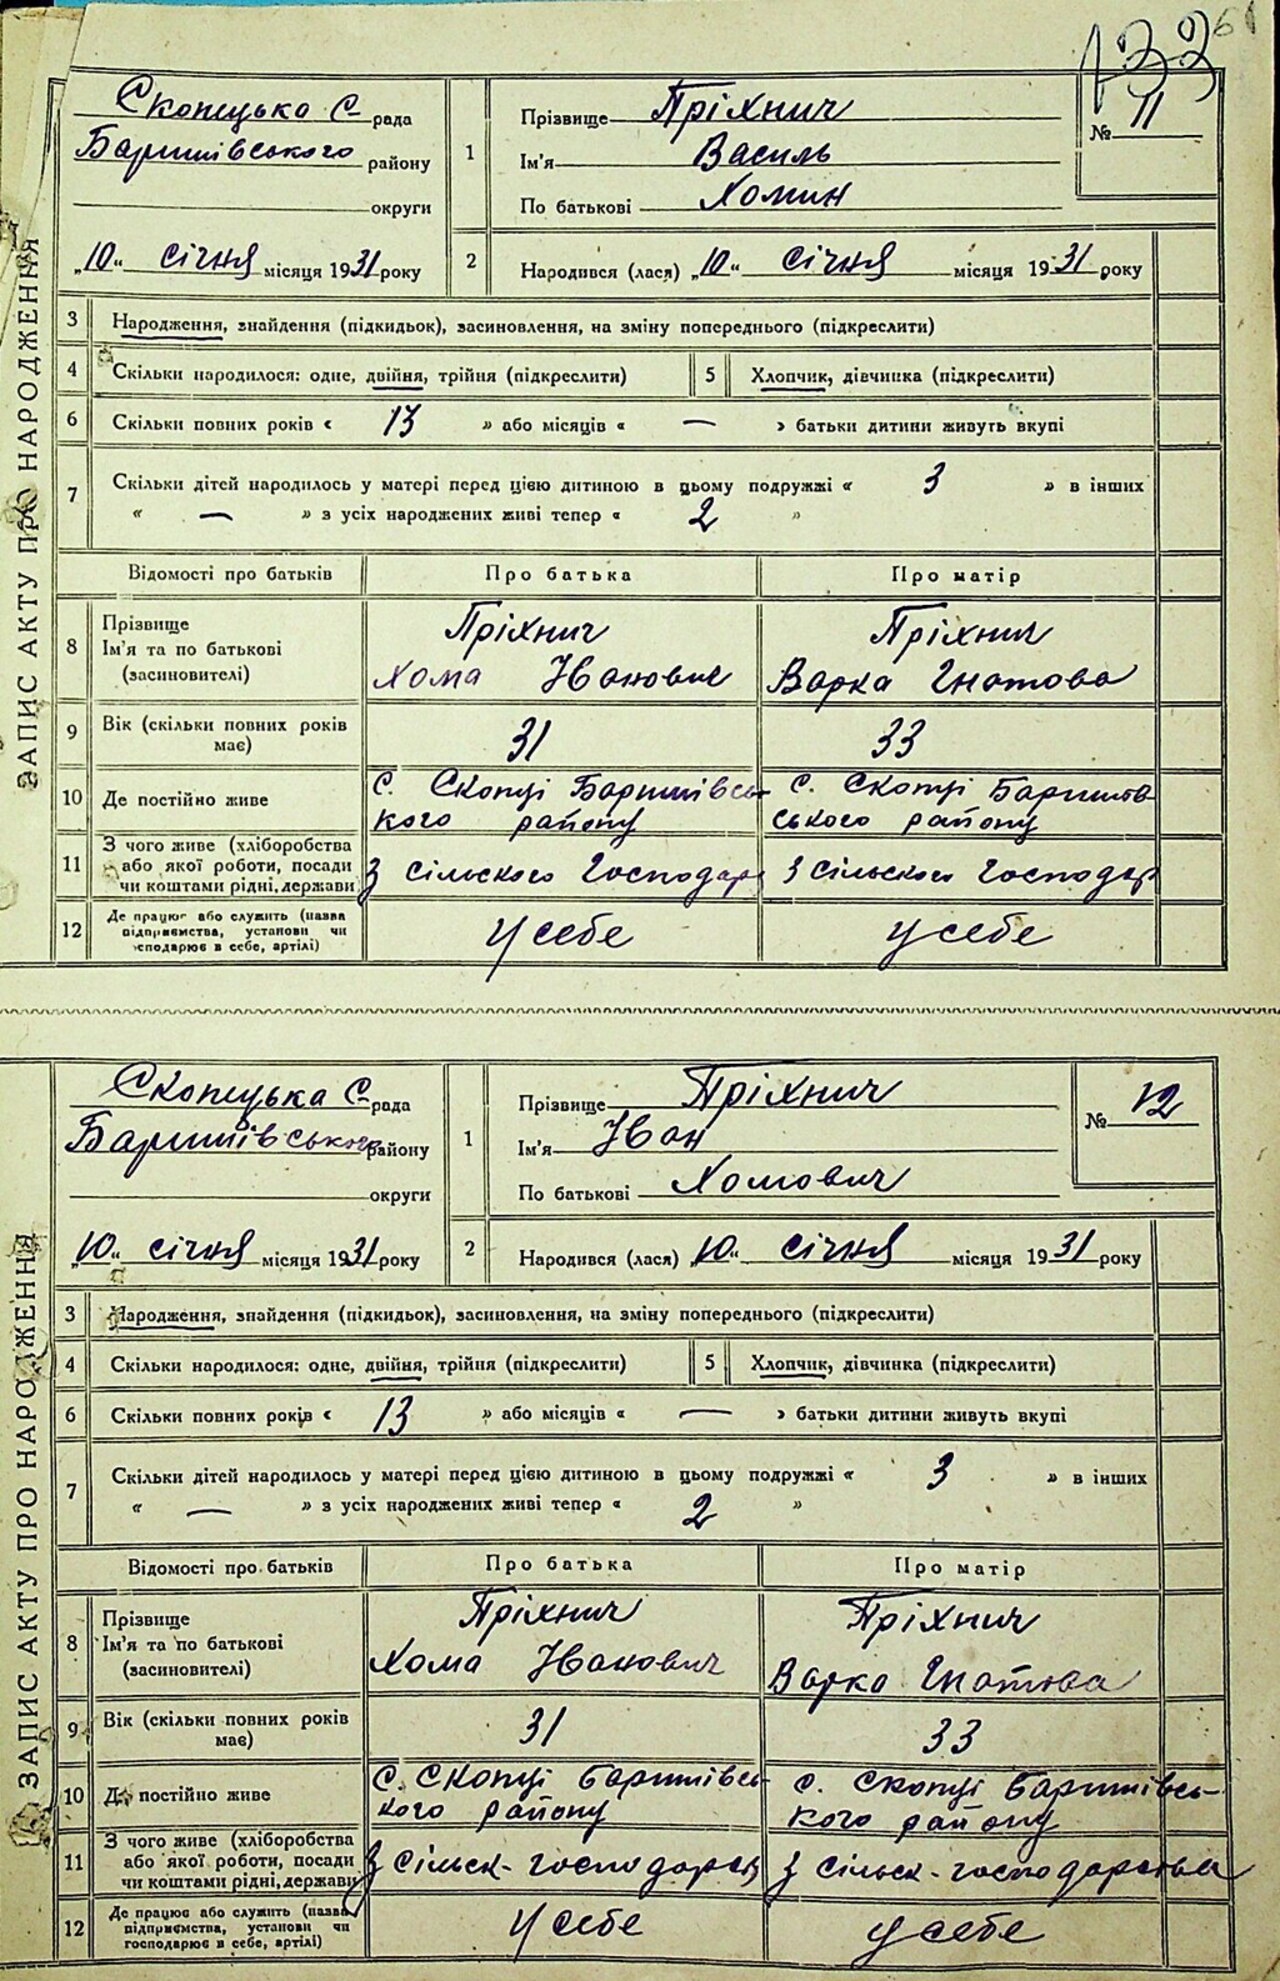 133
61
ЗАПИС АКТУ ПРО НАРОДЖЕННЯ
Скопецька С. рада
Баришівського району
округи
„10“ січня місяця 1931 року
1
Прізвище Пріхнич
Ім'я Василь
По батькові Хомин
№ 11
2 Народився (лася) „10“ січня місяця 1931 року
3 Народження, знайдення (підкидьок), засиновлення, на зміну попереднього (підкреслити)
4 Скільки народилося: одне, двійня, трійня (підкреслити) 5 Хлопчик, дівчинка (підкреслити)
6 Скільки повних років « 13 » або місяців « — » батьки дитини живуть вкупі
7 Скільки дітей народилось у матері перед цією дитиною в цьому подружжі « 3 » в інших
« — » з усіх народжених живі тепер « 2 »
Відомості про батьків Про батька Про матір
8 Прізвище Пріхнич Пріхнич
Ім'я та по батькові Хома Іванович Варка Гнатова
(засиновителі)
9 Вік (скільки повних років має) 31 33
10 Де постійно живе с. Скопці Баришівського району с. Скопці Баришівського району
11 З чого живе (хліборобства
або якої роботи, посади
чи коштами рідні, держави З сільского Господар З сільского Господар
12 Де працює або служить (назва
підприємства, установи чи
господарює в себе, артілі) у себе у себе
ЗАПИС АКТУ ПРО НАРОДЖЕННЯ
Скопецька С. рада
Баришівського району
округи
„10“ січня місяця 1931 року
1
Прізвище Пріхнич
Ім'я Іван
По батькові Хомович
№ 12
2 Народився (лася) „10“ січня місяця 1931 року
3 Народження, знайдення (підкидьок), засиновлення, на зміну попереднього (підкреслити)
4 Скільки народилося: одне, двійня, трійня (підкреслити) 5 Хлопчик, дівчинка (підкреслити)
6 Скільки повних років « 13 » або місяців « — » батьки дитини живуть вкупі
7 Скільки дітей народилось у матері перед цією дитиною в цьому подружжі « 3 » в інших
« — » з усіх народжених живі тепер « 2 »
Відомості про батьків Про батька Про матір
8 Прізвище Пріхнич Пріхнич
Ім'я та по батькові Хома Іванович Варка Гнатова
(засиновителі)
9 Вік (скільки повних років має) 31 33
10 Де постійно живе с. Скопці Баришівського району с. Скопці Баришівського району
11 З чого живе (хліборобства
або якої роботи, посади
чи коштами рідні, держави З сільск-господарств З сільск-господарства
12 Де працює або служить (назва
підприємства, установи чи
господарює в себе, артілі) у себе у себе